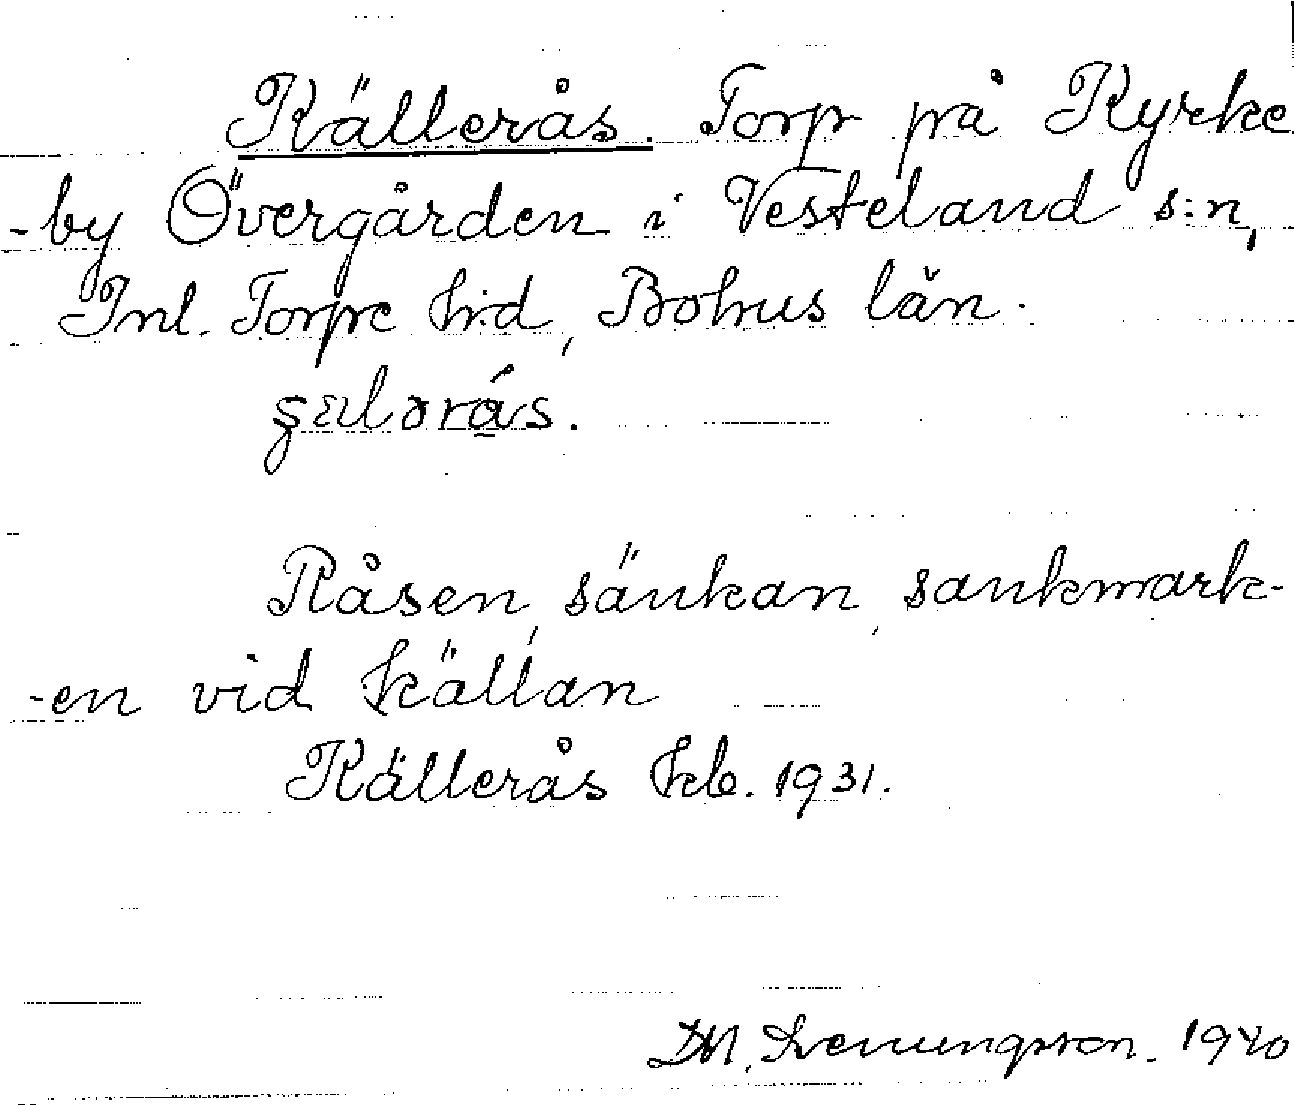 Källerås. Torp på Kyrke
-by Övergården i Vesteland s:n,
Inl. Torpe hd, Bohus län.
Råsen, sänkan, sankmark-
-en vid källan
Källerås kb. 1931.
1940